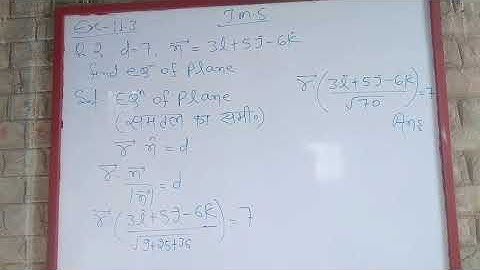 Ex-11.3
I.M.S
Q.2. d=7, n⃗ = 3î+5ĵ-6k̂
find eqn of plane
Sol. Eqn of Plane
(समतल का समी०)
r⃗ n̂ = d
r⃗ n⃗/|n⃗| = d
r⃗ (3î+5ĵ-6k̂/√9+25+36) = 7
r⃗ (3î+5ĵ-6k̂/√70) = 7
Ans